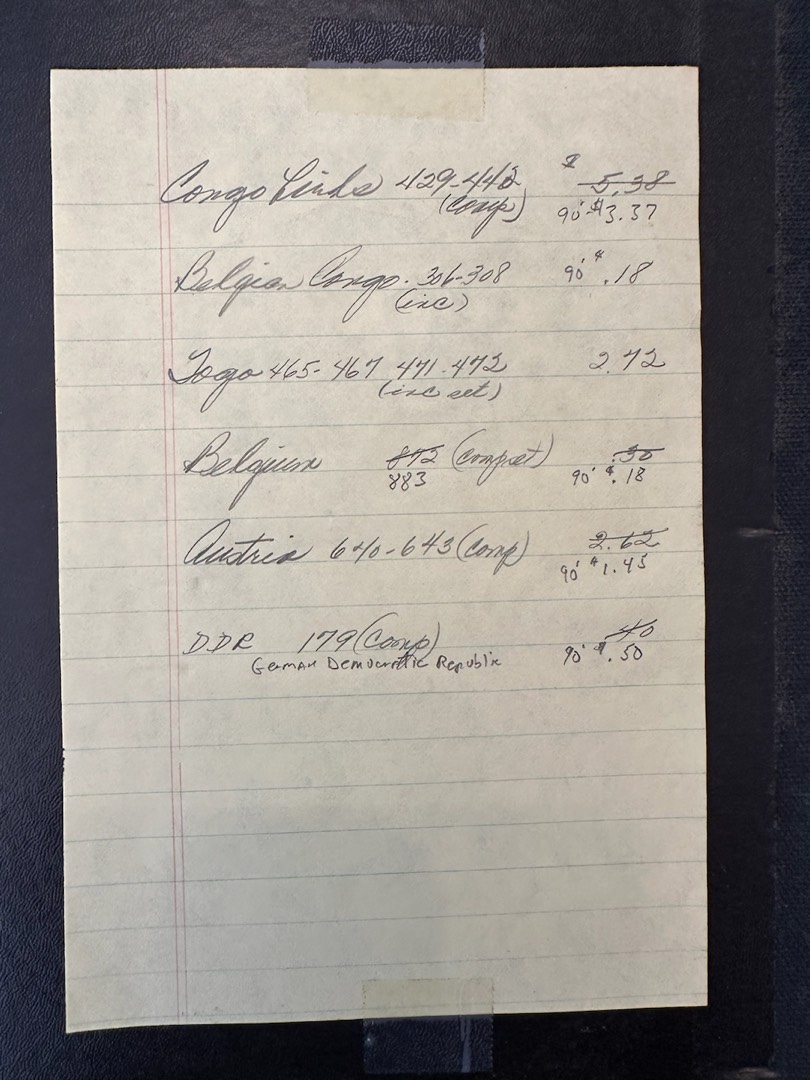 Congo Birds 429-440 $ 5.38
(comp) 90' $3.37
Belgian Congo. 306-308 90' $.18
(inc)
Togo 465-467 471-472 2.72
(inc set)
Belgium 872 (comp set) .30
883 90' $.18
Austria 640-643 (comp) 2.62
90' $1.45
DDR 179 (comp) .40
German Democratic Republic 90' $.50